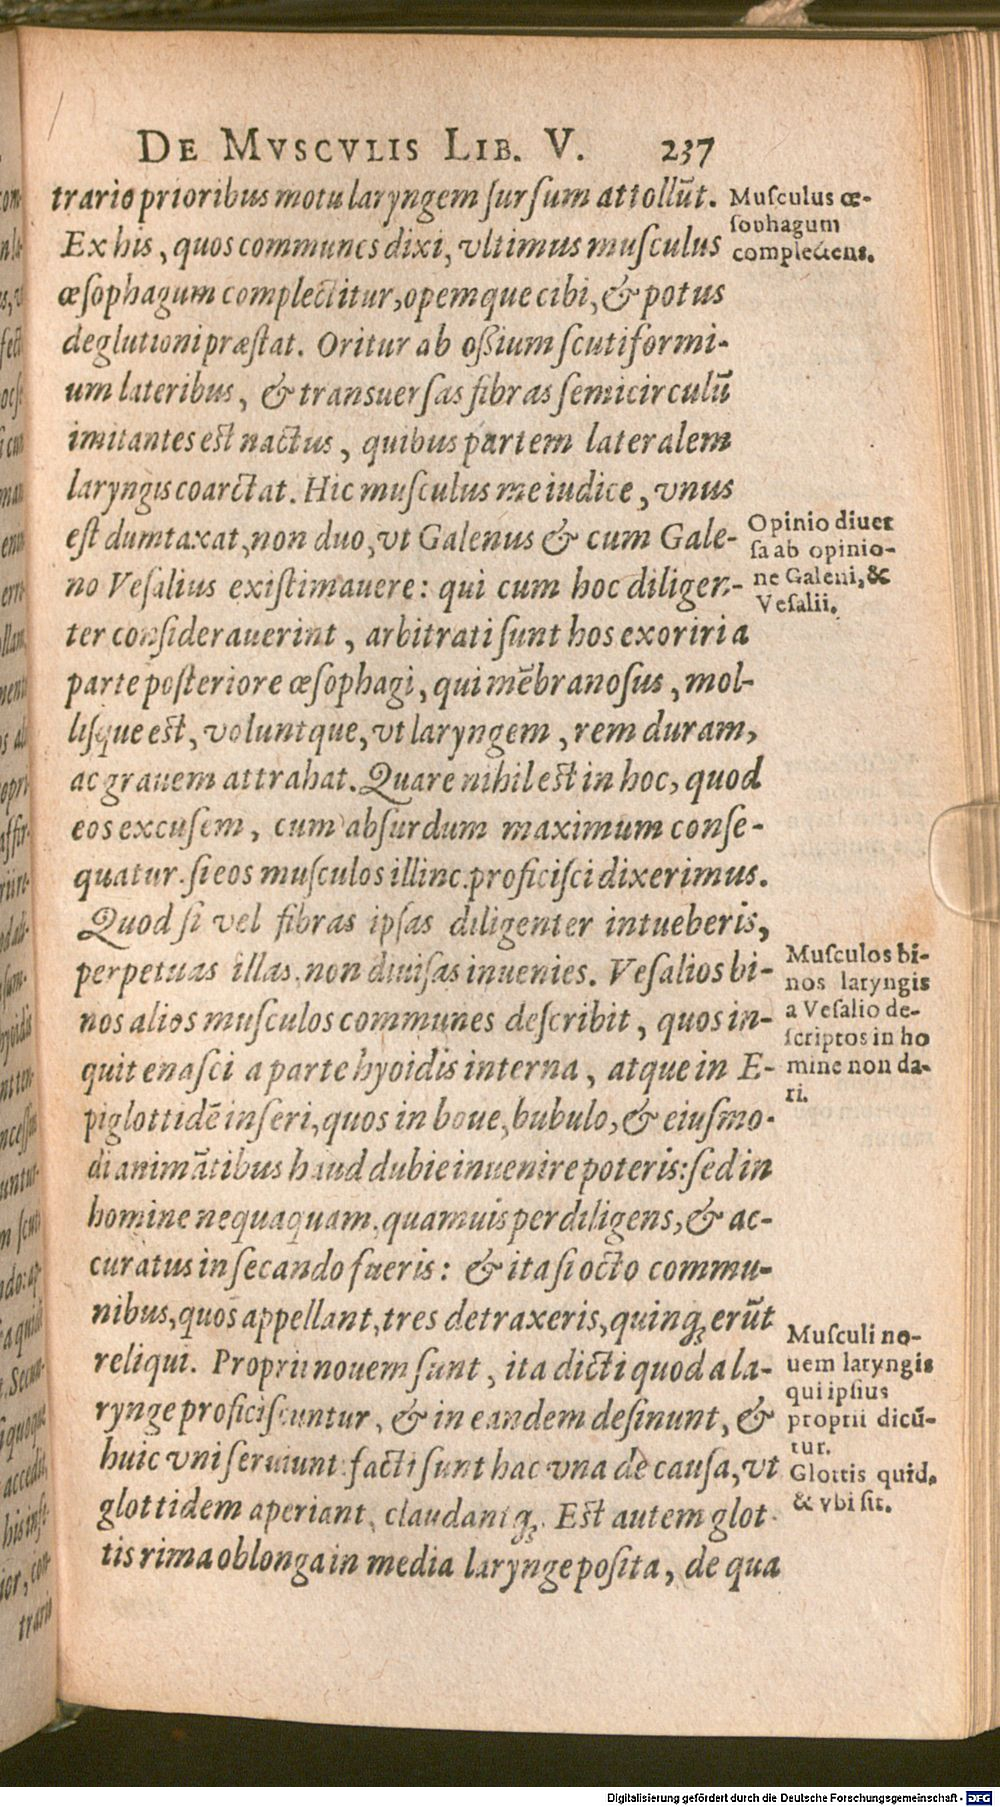 DE MVSCVLIS LIB. V. 237
trario prioribus motu laryngem sursum attollūt.
Ex his, quos communes dixi, vltimus musculus
œsophagum complectitur, opemque cibi, & potus
deglutioni præstat. Oritur ab ossium scutiformi-
um lateribus, & transuersas fibras semicirculū
imitantes est nactus, quibus partem lateralem
laryngis coarctat. Hic musculus me iudice, vnus
est dumtaxat, non duo, vt Galenus & cum Gale-
no Vesalius existimauere: qui cum hoc diligen-
ter considerauerint, arbitrati sunt hos exoriri a
parte posteriore œsophagi, qui mēbranosus, mol-
lisque est, voluntque, vt laryngem, rem duram,
ac grauem attrahat. Quare nihil est in hoc, quod
eos excusem, cum absurdum maximum conse-
quatur. si eos musculos illinc proficisci dixerimus.
Quod si vel fibras ipsas diligenter intueberis,
perpetuas illas, non diuisas inuenies. Vesalios bi-
nos alios musculos communes describit, quos in-
quit enasci a parte hyoidis interna, atque in E-
piglottidē inseri, quos in boue, bubulo, & eiusmo-
di animātibus haud dubie inuenire poteris: sed in
homine nequaquam, quamuis perdiligens, & ac-
curatus in secando fueris: & ita si octo commu-
nibus, quos appellant, tres detraxeris, quinq; erūt
reliqui. Proprii nouem sunt, ita dicti quod a la-
rynge proficiscuntur, & in eandem desinunt, &
huic vni seruiunt: facti sunt hac vna de causa, vt
glottidem aperiant, claudantq;. Est autem glot-
tis rima oblonga in media larynge posita, de qua
Musculus œ-
sophagum
complectens.
Opinio diuer
sa ab opinio-
ne Galeni, &
Vesalii.
Musculos bi-
nos laryngis
a Vesalio de-
scriptos in ho
mine non da-
ri.
Musculi no-
uem laryngis
qui ipsius
proprii dicū-
tur.
Glottis quid,
& vbi sit.
Digitalisierung gefördert durch die Deutsche Forschungsgemeinschaft - DFG